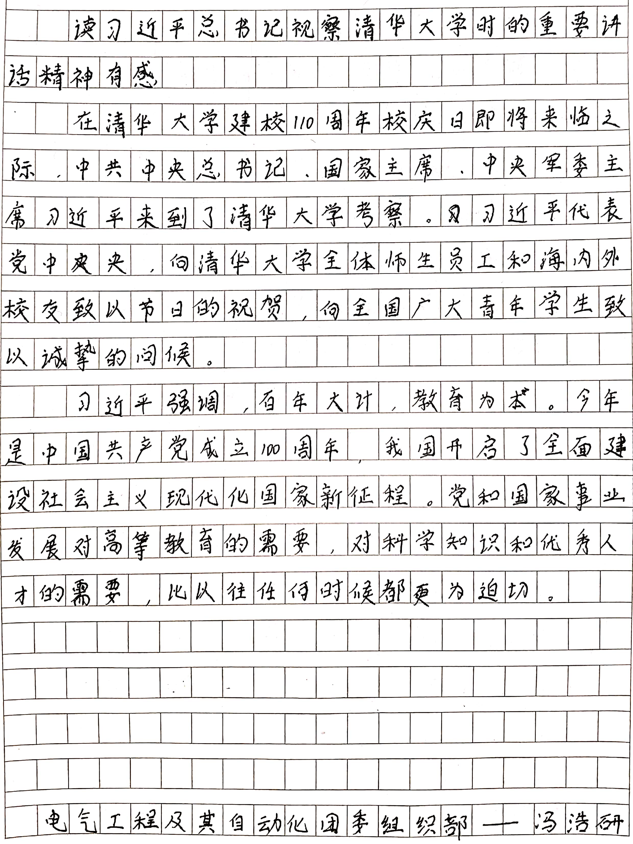 读习近平总书记视察清华大学时的重要讲
话精神有感
在清华大学建校110周年校庆日即将来临之
际，中共中央总书记、国家主席、中央军委主
席习近平来到了清华大学考察。习近平代表
党中央，向清华大学全体师生员工和海内外
校友致以节日的祝贺，向全国广大青年学生致
以诚挚的问候。
习近平强调，百年大计，教育为本。今年
是中国共产党成立100周年，我国开启了全面建
设社会主义现代化国家新征程。党和国家事业
发展对高等教育的需要，对科学知识和优秀人
才的需要，比以往任何时候都更为迫切。
电气工程及其自动化团委组织部——冯浩研